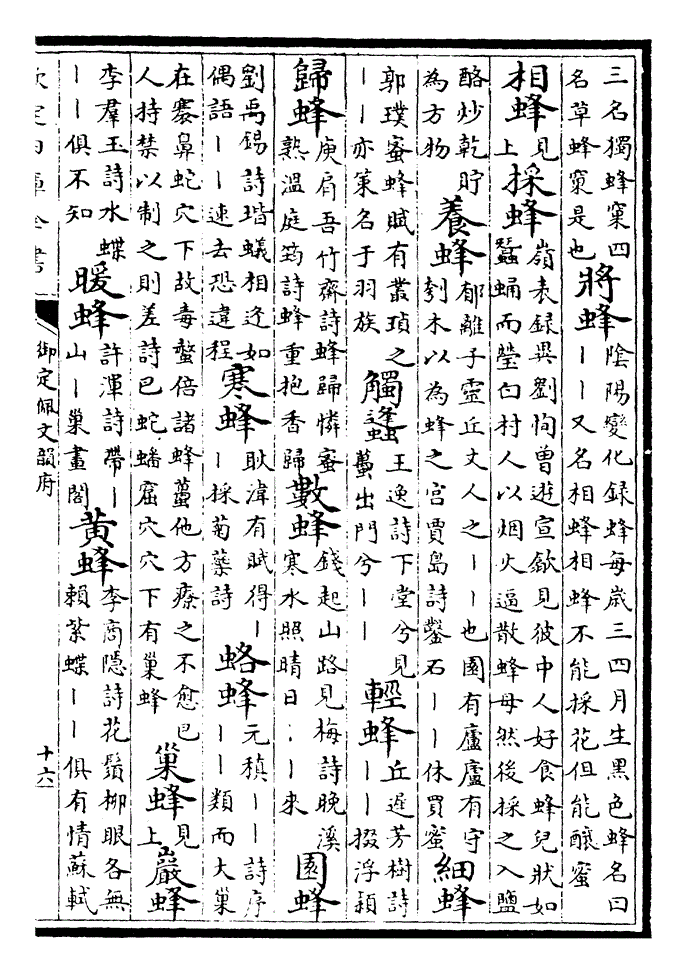 三名獨蜂窠四
名草蜂窠是也
將蜂
陰陽變化録蜂每歳三四月生黑色蜂名曰
丨丨又名相蜂相蜂不能採花但能釀蜜
相蜂
見
上
採蜂
嶺表録異劉恂曽遊宣歙見彼中人好食蜂兒狀如
蠶蛹而瑩白村人以烟火逼散蜂母然後採之入鹽
酪炒乾貯
為方物
養蜂
郁離子靈丘丈人之丨丨也園有廬廬有守
刳木以為蜂之宫賈島詩鑿石丨丨休買蜜
細蜂
郭璞蜜蜂賦有叢瑣之
丨丨亦策名于羽族
觸蠭
王逸詩下堂兮見
蠆出門兮丨丨
輕蜂
丘遲芳樹詩
丨丨掇浮頴
歸蜂
庾肩吾竹齋詩蜂歸憐蜜
熟溫庭筠詩蜂重抱香歸
數蜂
錢起山路見梅詩晚溪
寒水照晴日丨丨来
園蜂
劉禹錫詩堦蟻相逢如
偶語丨丨速去恐違程
寒蜂
耿湋有賦得丨
丨採菊蘂詩
蛒蜂
元稹丨丨詩序
丨丨類而大巢
在褰鼻蛇穴下故毒螫倍諸蜂蠆他方療之不愈巴
人持禁以制之則差詩巴蛇蟠窟穴穴下有巢蜂
巢蜂
見
上
巖蜂
李羣玉詩水蝶
丨丨俱不知
暖蜂
許渾詩帶丨
山丨巢畫閣
黄蜂
李商隠詩花鬚柳眼各無
頼紫蝶丨丨俱有情蘇軾
欽定四庫全書
御定佩文韻府
十六